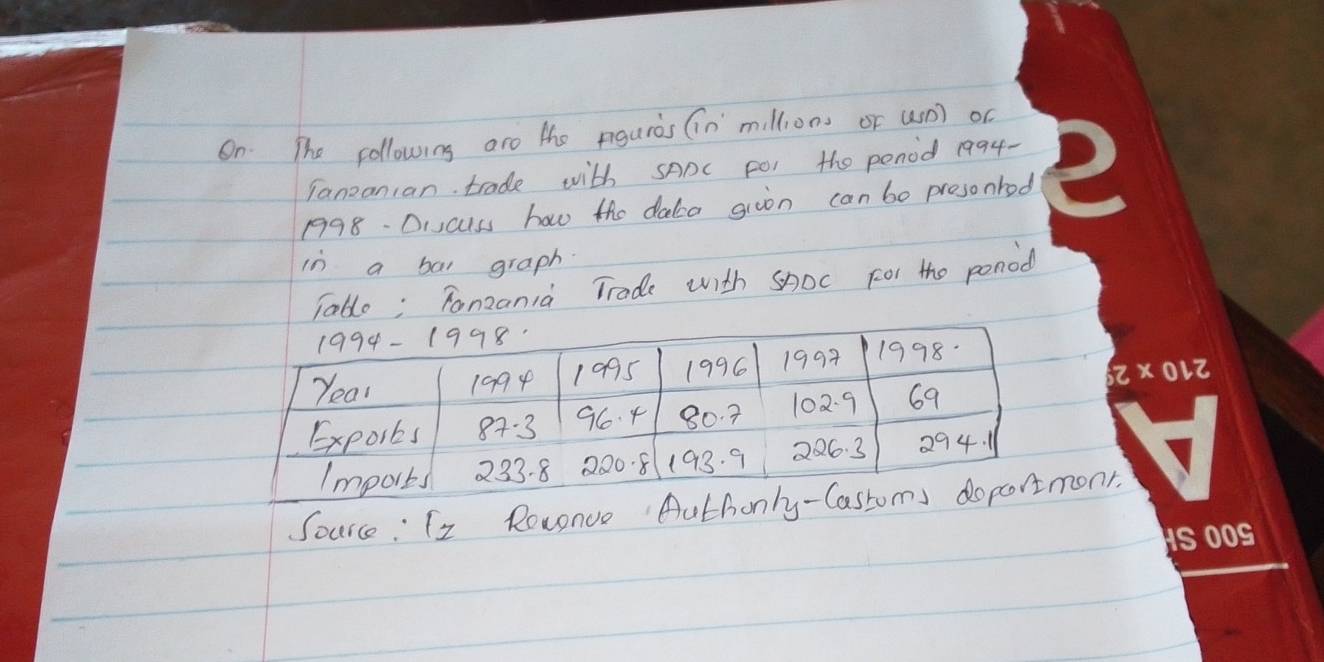 Qn. The following are the figures (in millions of USD) of
Tanzanian trade with SADC for the period 1994-
1998. Discuss how the data given can be presented
in a bar graph.
Table: Tanzania Trade with SADC for the period
1994 - 1998.
Year 1994 1995 1996 1997 1998.
Exports 87.3 96.4 80.7 102.9 69
Imports 233.8 220.8 193.9 226.3 294.1
Source: Tz Revenue Authority - Customs department.
210 x 29
A
500 SH